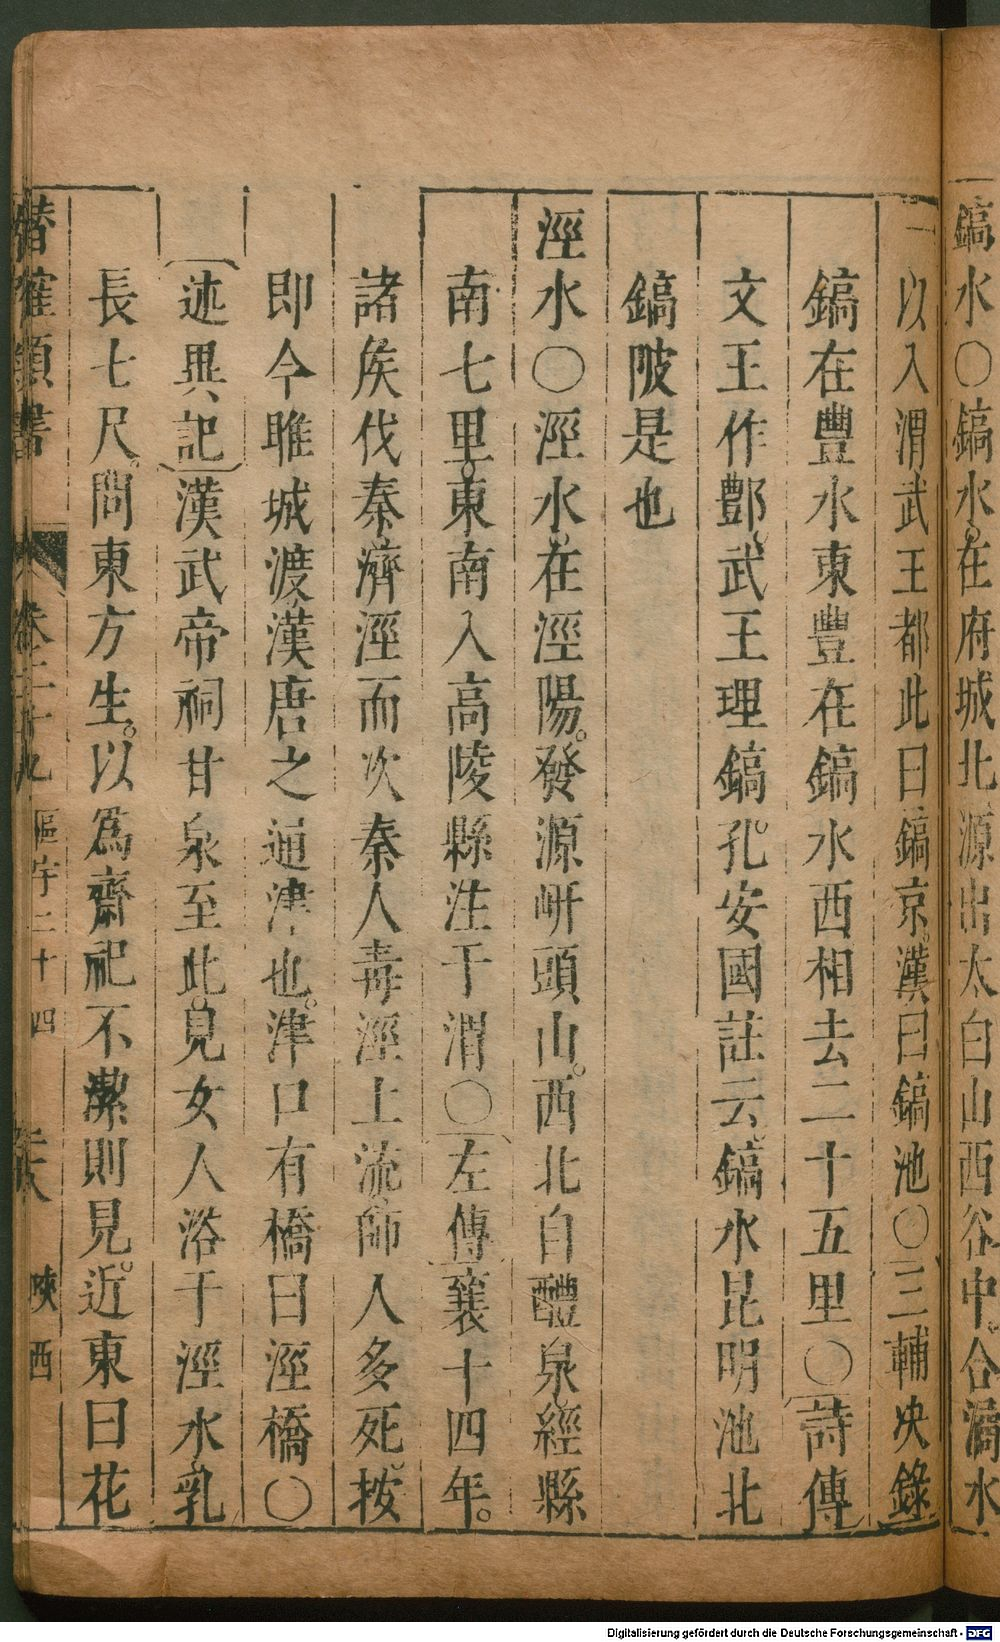 鎬水〇鎬水在府城北源出太白山西谷中合潏水
一以入渭武王都此曰鎬京漢曰鎬池〇三輔决錄
鎬在豐水東豐在鎬水西相去二十五里〇詩傳
文王作酆武王理鎬孔安國註云鎬水昆明池北
鎬陂是也
涇水〇涇水在涇陽發源岍頭山西北自醴泉經縣
南七里東南入高陵縣注于渭〇左傳襄十四年
諸矦伐秦濟涇而次秦人毒涇上流師人多死按
即今睢城渡漢唐之通津也津口有橋曰涇橋〇
述異記漢武帝祠甘泉至此見女人浴于涇水乳
長七尺問東方生以爲齋祀不潔則見近東曰花
潛確類書 卷二十九 區宇二十四 陜西
Digitalisierung gefördert durch die Deutsche Forschungsgemeinschaft - DFG